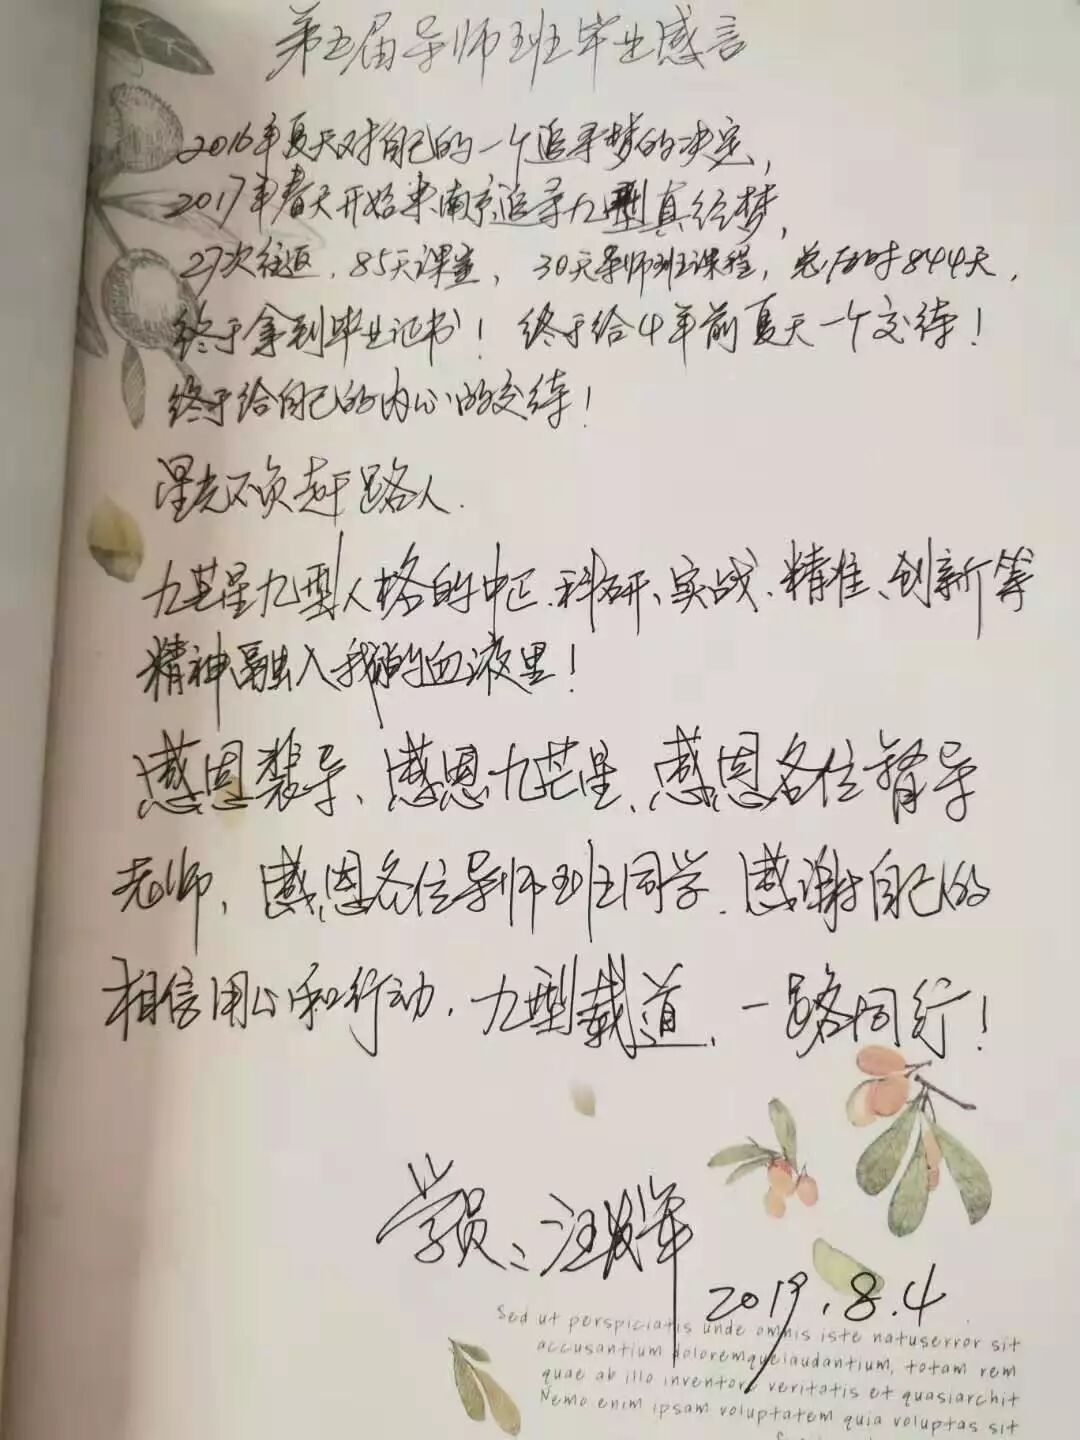 第五届导师班毕业感言
2016年夏天对自己的一个追寻梦的决定,
2017年春天开始来南京追寻九型真经梦,
27次往返,85天课堂,30天导师班课程,总历时844天,
终于拿到毕业证书!终于给4年前夏天一个交待!
终于给自己的内心的交待!
星光不负赶路人.
九芒星九型人格的中正、科研、实战、精准、创新等
精神融入我的血液里!
感恩裴导、感恩九芒星、感恩各位督导
老师、感恩各位导师班同学.感谢自己的
相信用心和行动,九型载道,一路同行!
学员:汪
2019.8.4
Sed ut perspiciatis unde omnis iste natuserror sit
accusantium doloremquelaudantium, totam rem
quae ab illo inventore veritatis et quasiarchit
Nemo enim ipsam voluptatem quia voluptas sit